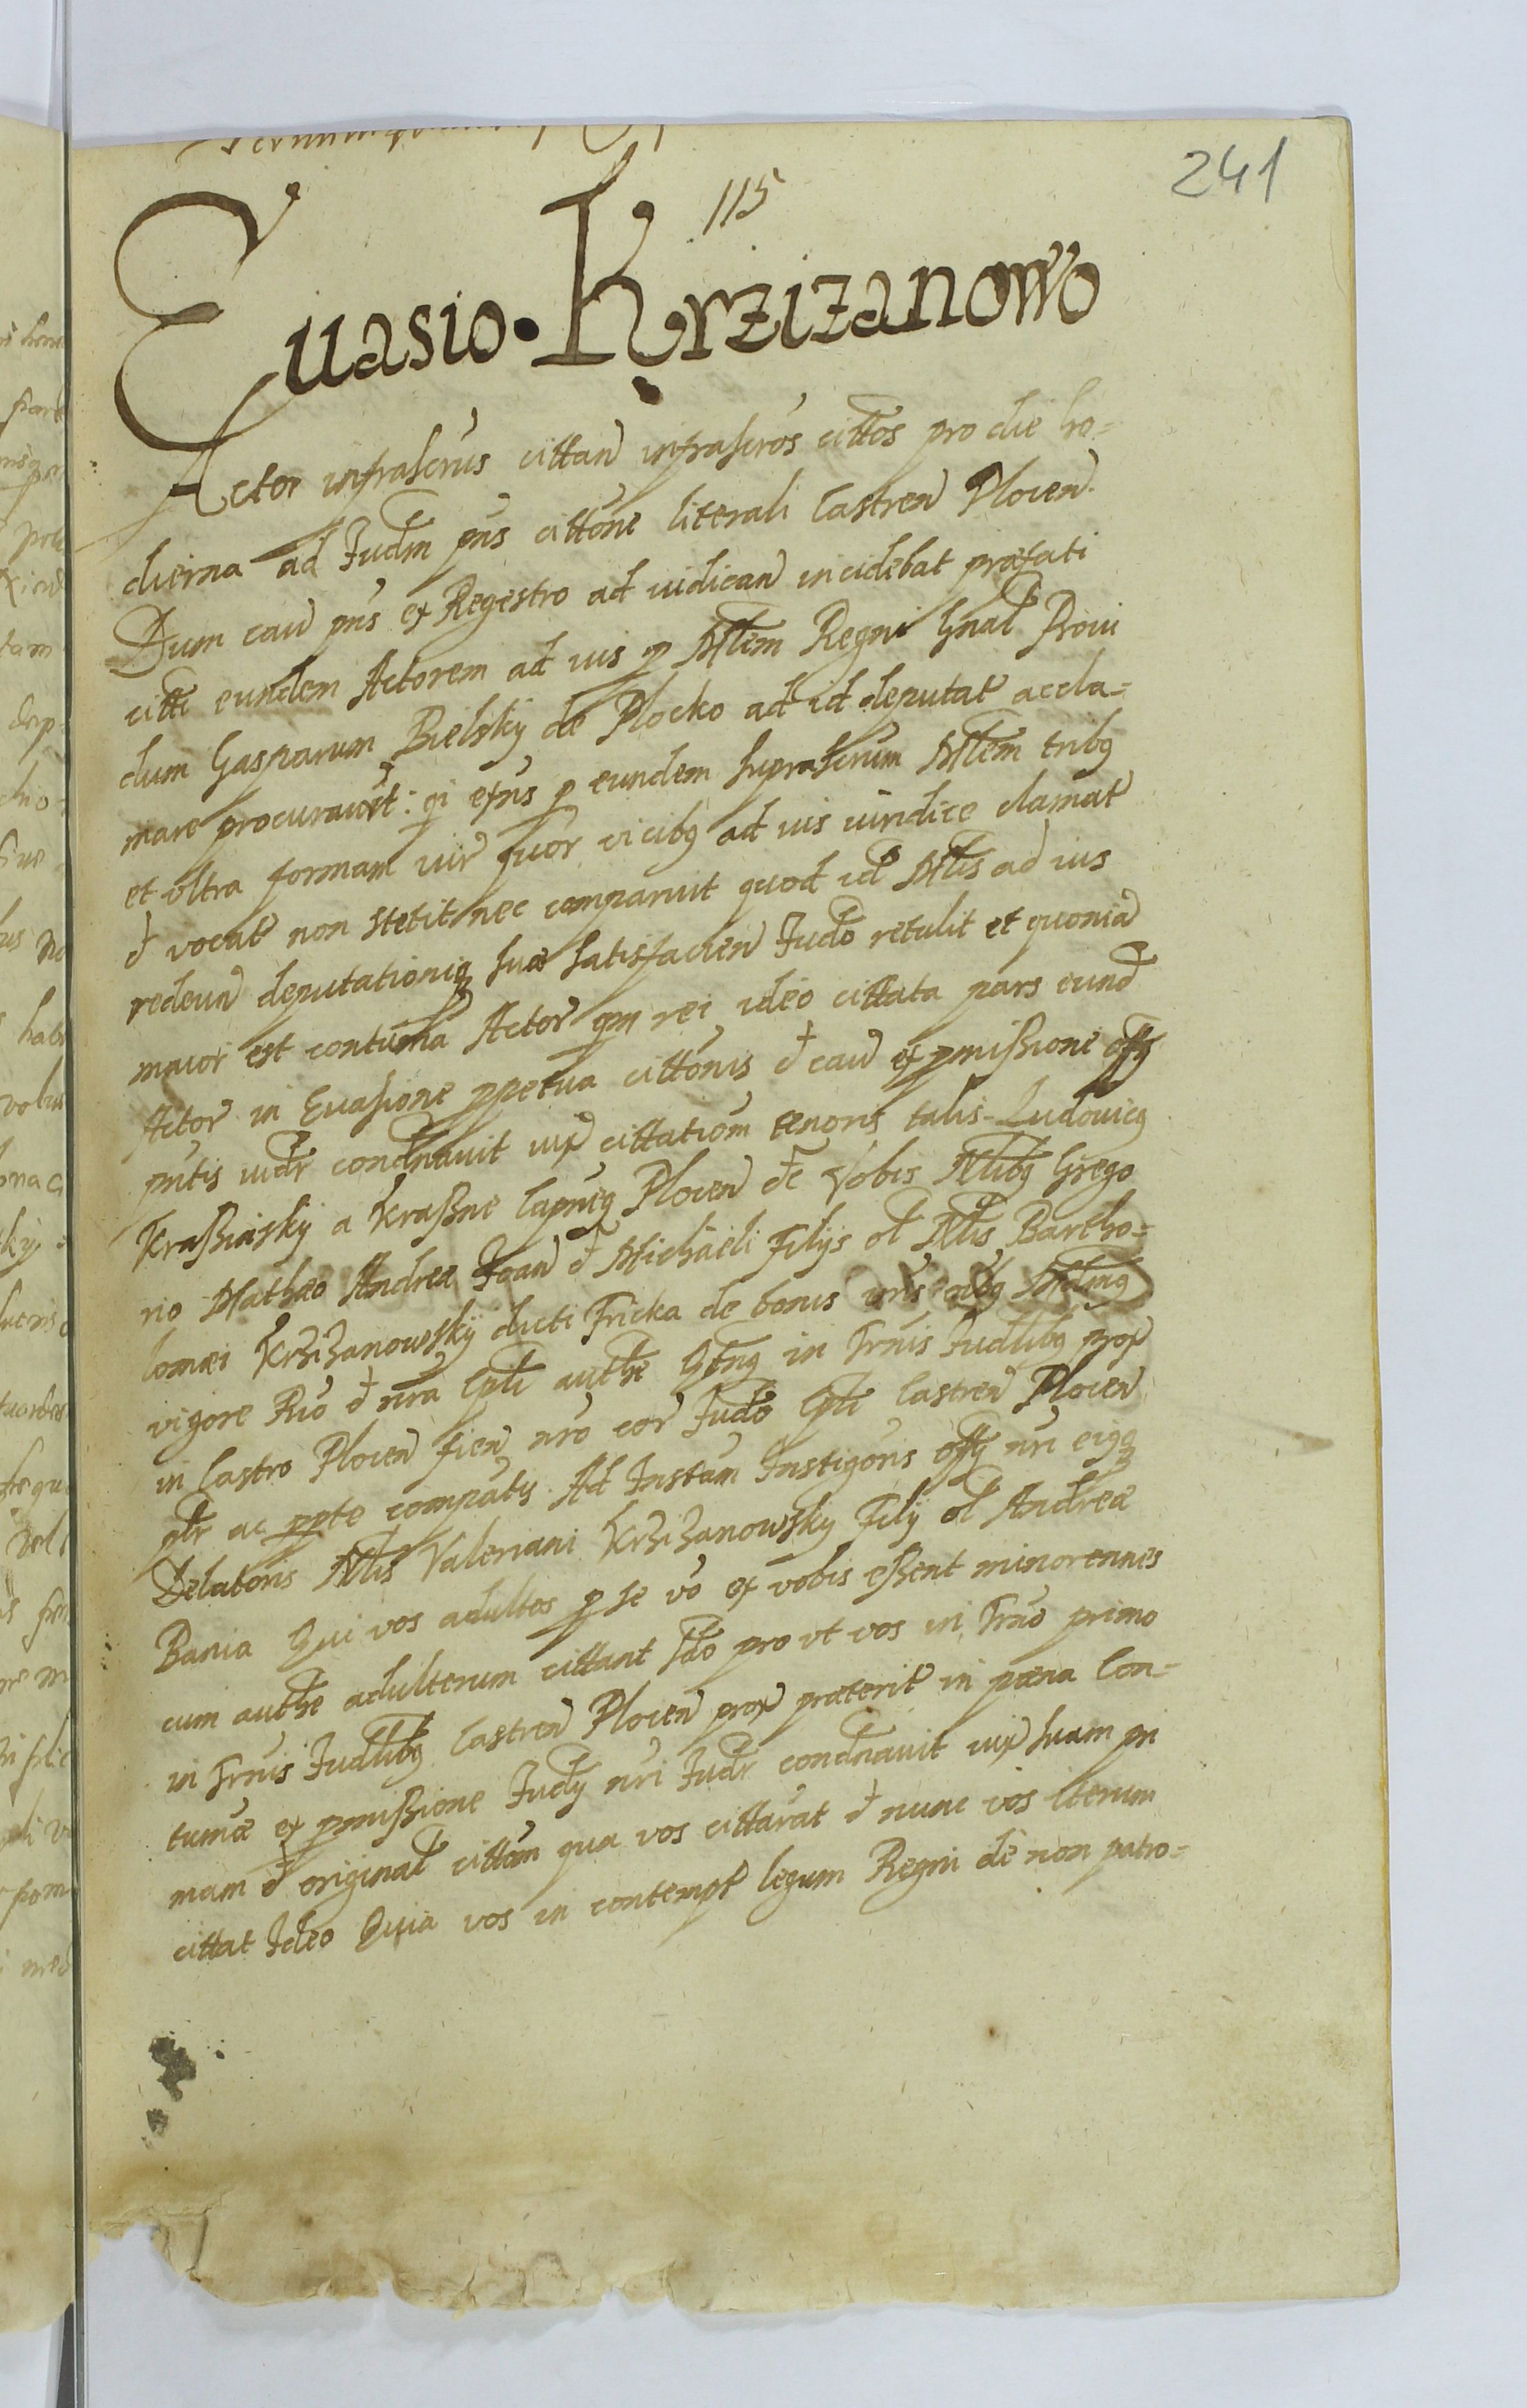 241
115
Euasio. Krzizanowo
Actor infrascrus cittan infrascros cittos pro die ho=
dierna ad Judm pns cittone literali Castren Plocen.
Dum cau pns ex Regestro ad iudican incidebat præfati
citti eundem Actorem ad ius p Mlem Regni Gnal Proui
dum Gasparum Bielskÿ de Plocko ad id deputat accla=
mare procurauit: qi exns p eundem suprascrum Mlem tribq
et vltra formam iur quor vicibq ad ius iuridice clamat
et vocat non stetit nec comparuit quod id Mlis ad ius
redeun deputationiq suæ satisfacien Judo retulit et quonia
maior est contuma Actor qm rei ideo cittata pars eund
Actor in Euasione ppetua cittonis et cau ex pmissione offy
pntis iudr condnauit iux cittatiom tenoris talis Ludouicq
Krassinskÿ a Krassne Capneq Plocen etc Vobis Nlibq Grego
rio Mathæo Andreæ Joan et Michaeli Filÿs ol Nlis Bartho=
lomæi Krzizanowskÿ dicti Fricka de bonis vris
vigore Rio et nra Cpli authe in Trnis Judlibq prox
in Castro Plocen fien nro cor Judo Cpli Castren Plocen
pltr ac ppte compatis. Ad Instam Instigoris offy nri eiqq
Delatoris Nlis Valeriani Krzizanowsky Filÿ ol Andreæ
Bania Qui vos adultos p se vo ex vobis essent minorennes
cum authe adulterum cittant sdo pro vt vos in Trno primo
in Trnis Judlibq Castren Plocen prox præterit in pæna Con=
tumæ ex pmissione Judy nri Judr condnauit iux suam pri
mam et original cittom qua vos cittarat et nunc vos iterum
cittat Ideo Quia vos in contempt legum Regni de non patro=